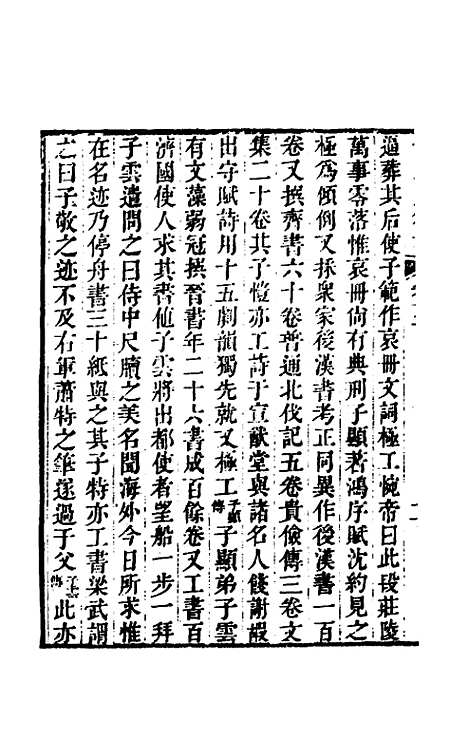 逼葬其后使子範作哀冊文詞極工惋帝曰此段莊陵
萬事零落惟哀冊尚有典刑子顯著鴻序賦沈約見之
極爲傾倒又採衆家後漢書考正同異作後漢書一百
卷又撰齊書六十卷普通北伐記五卷貴儉傳三卷文
集二十卷其子愷亦工詩于宣猷堂與諸名人餞謝嘏
出守賦詩用十五劇韻獨先就又極工子顯傳子顯弟子雲
有文藻弱冠撰晉書年二十六書成百餘卷又工書百
濟國使人求其書値子雲將出都使者望船一步一拜
子雲遣問之曰侍中尺牘之美名聞海外今日所求惟
在名迹乃停舟書三十紙與之其子特亦工書梁武謂
之曰子敬之迹不及右軍蕭特之筆遂過于父子雲傳此亦